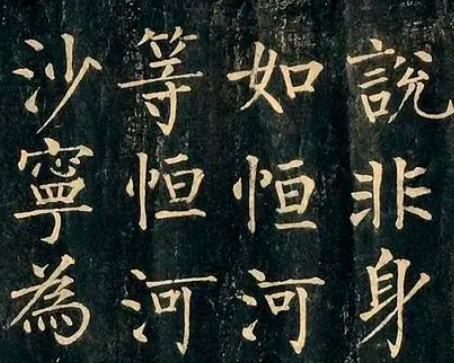 說非身
如恒河
等恒河
沙寧為